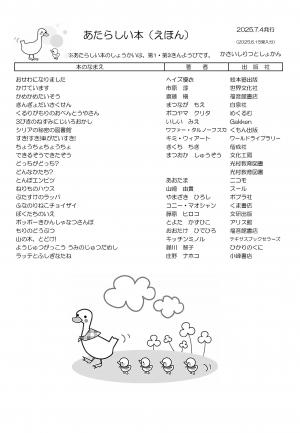 あたらしい本（えほん）
2025.7.4発行
（2025.6.15受入分）
※あたらしい本のしょうかいは、第1・第3きんようびです。 かさいしりつとしょかん
本のなまえ 著 者 出 版 社
おせわになりました ヘイズ優歩 絵本館出版
かけています 市原 淳 世界文化社
かめかめたいそう 齋藤 槙 福音館書店
ぎんぎょだいさくせん まつなが もち 白泉社
くるりがもりのおべんとうやさん ポコヤマ クリタ めくるむ
3びきのねずみにじいろおかし いしい みえ Gakken
シリアの秘密の図書館 ワファー・タルノーフスカ くもん出版
すき！すき！車がだいすき！ キミ・ウィアート ワールドライブラリー
ちょうちょちょうちょ きくち ちき 偕成社
できるぞうできたぞう まつおか しゅうぞう 文化工房
どっちがどっち？ 光村教育図書
どんなかたち？ 光村教育図書
とんぼエンピツ あおたま ニコモ
ねりものハウス 山崎 由貴 スール
ぷたすけのラッパ やまざき ひろし ポプラ社
ふなのりねこチョイザイ コニー・マオシャン くま書店
ぼくたちのいえ 藤原 ヒロコ 文研出版
ポッポーきかんしゃなつさんぽ とよた かずひこ アリス館
もりのどうぶつ おおたけ ひでひろ 福音館書店
山の木、とどけ！ キッチンミノル テキサスブックセラーズ
ようじゅつがっこう うみのじゅつだめし 越川 慧子 ひかりのくに
ラッテとふしぎなたね 庄野 ナホコ 小峰書店